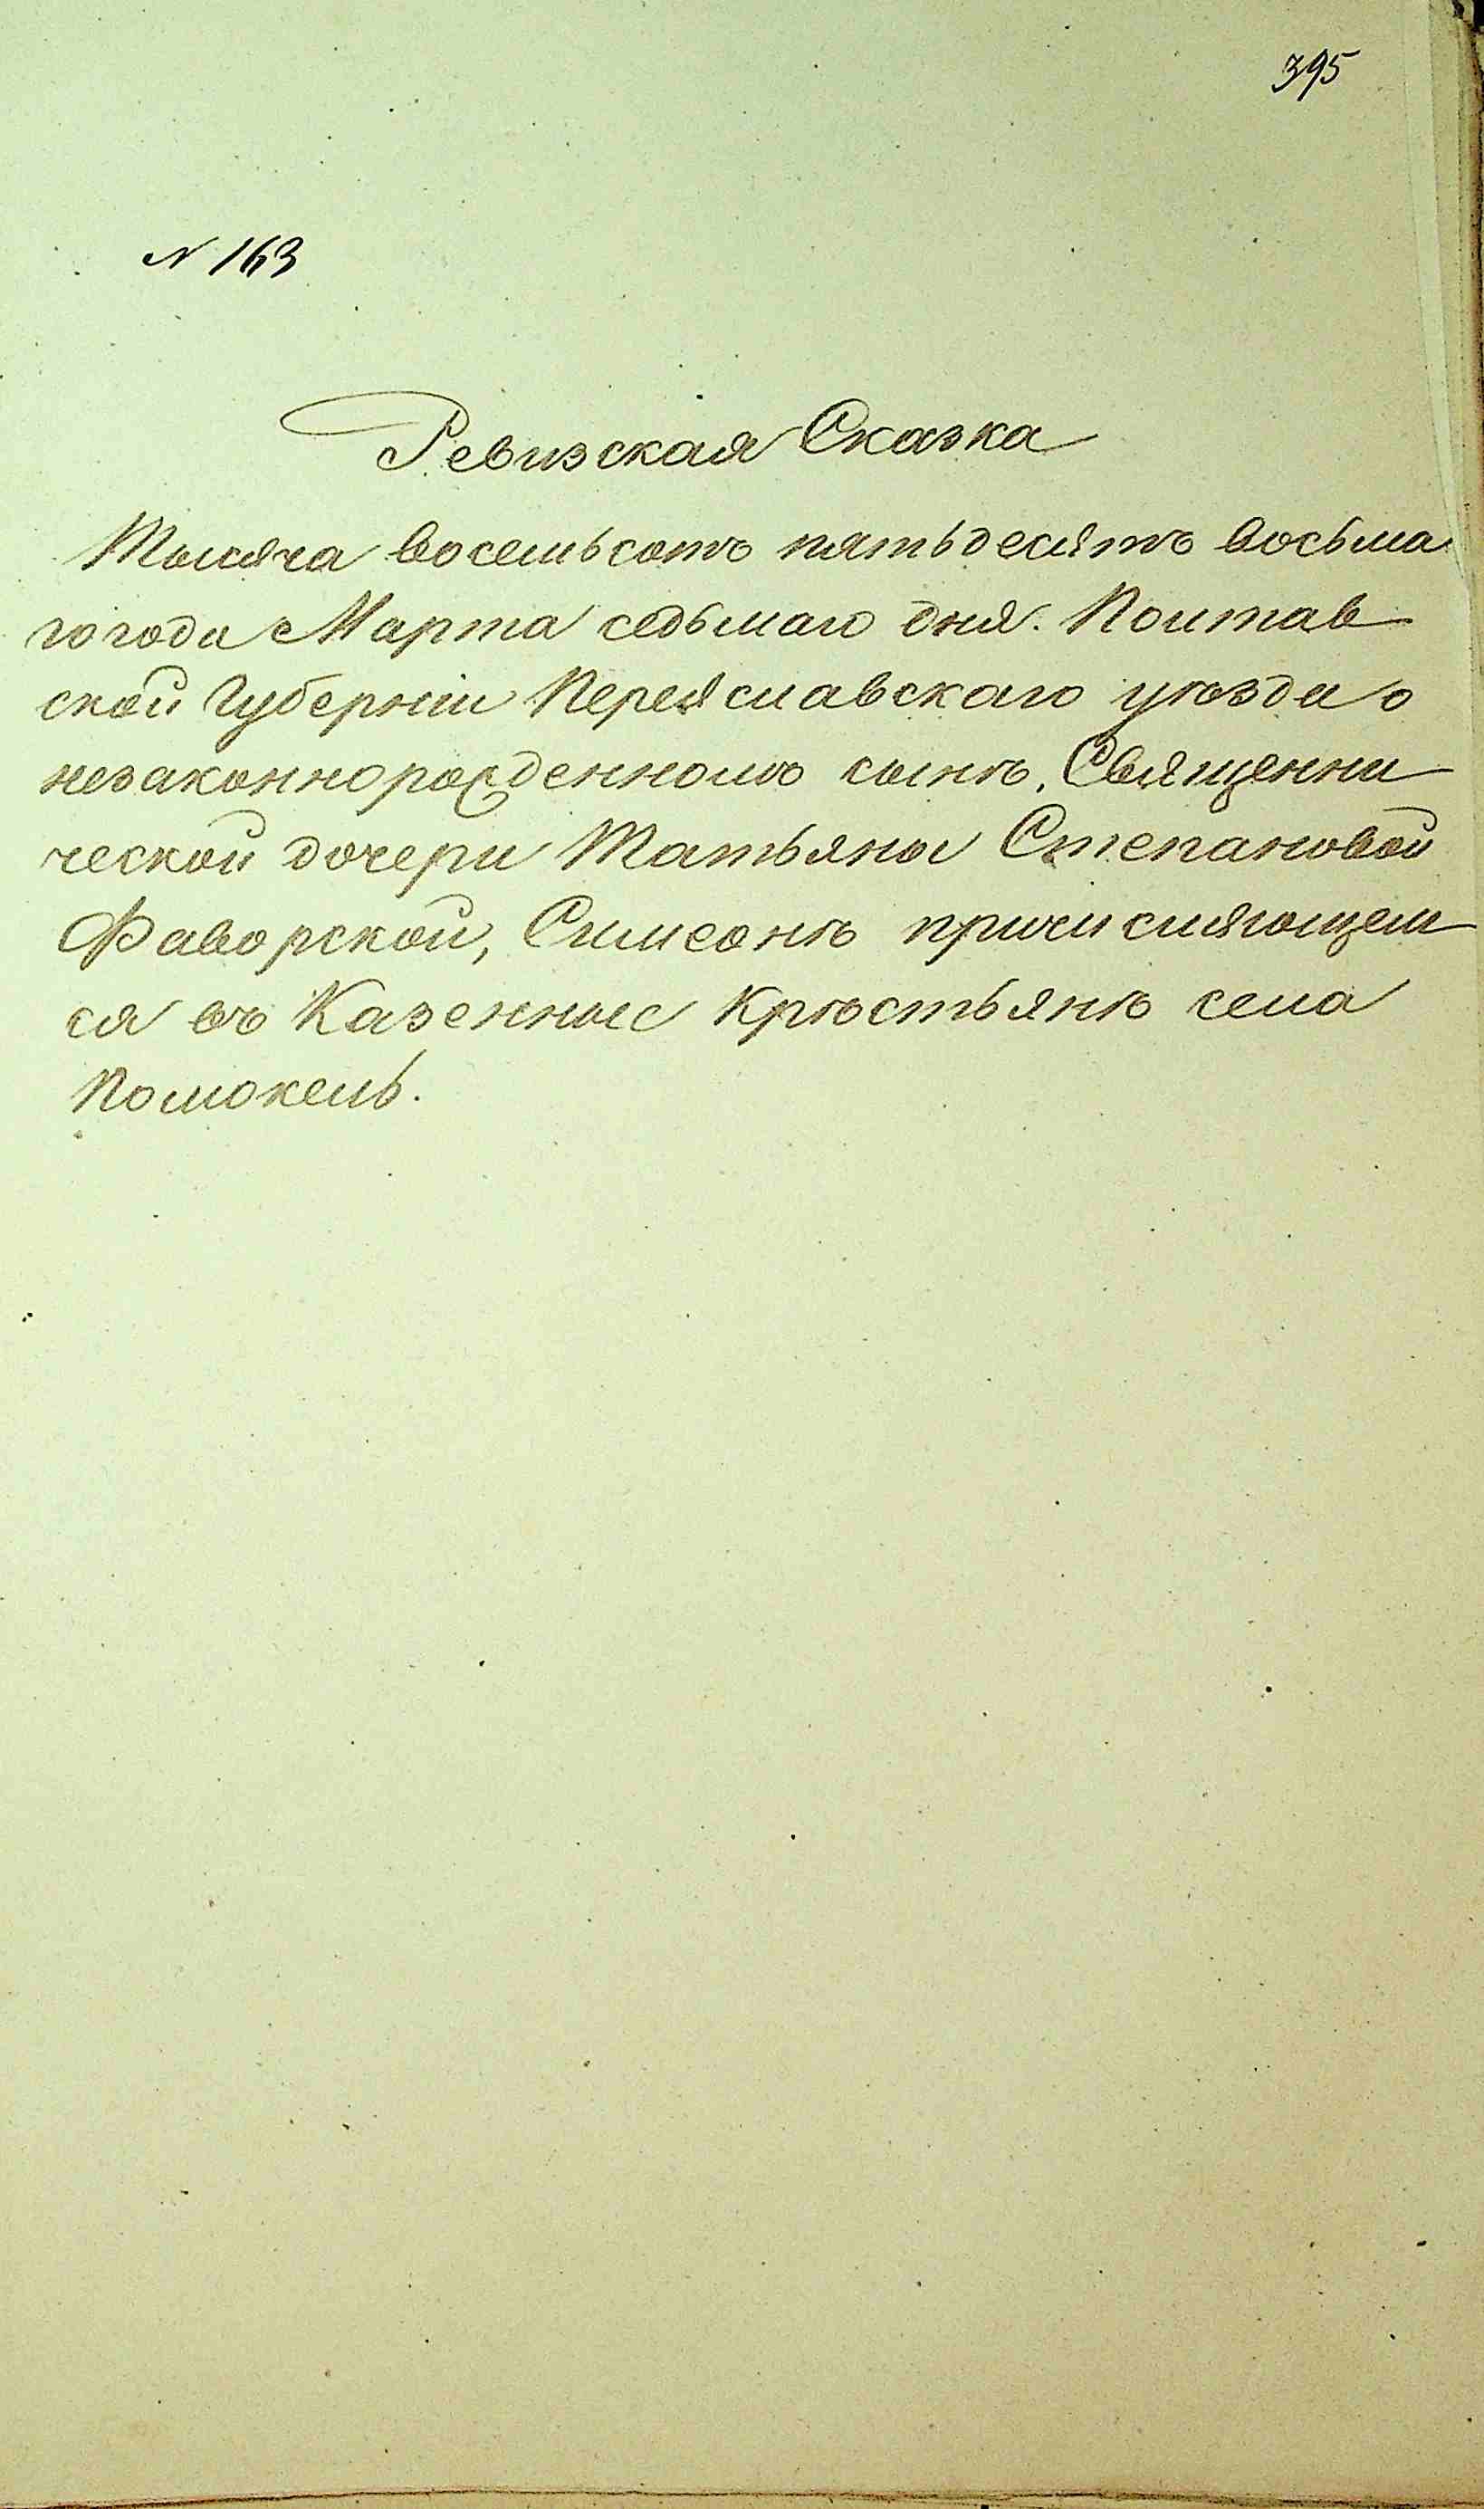 395
N 163
Ревизская Сказка
Тысяча восемьсотъ пятьдесятъ восьма
го года Марта седьмаго дня. Полтав
ской Губерніи Переяславскаго уѣзда о
незаконнорожденномъ сынѣ, Священни
ческой дочери Татьяны Степановой
Фаворской, Симеонѣ причисляющем
ся въ Казенные Крѣстьянѣ села
Помокель.